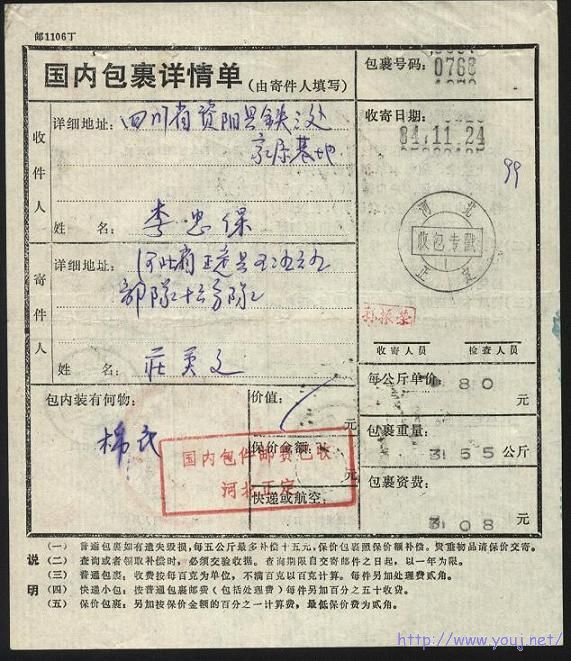 邮1106丁
国内包裹详情单 (由寄件人填写)
包裹号码: 0768
收件人
详细地址: 四川省资阳县铁二处
家属基地
姓名: 李忠保
收寄日期:
84.11.24
99
河北
收包专戳
1
正定
寄件人
详细地址: 河北省正定县
部队十六分队
姓名: 莊英文
孙振荣
收寄人员 检查人员
每公斤单价: 80 元
包内装有何物:
棉衣
价值: 元
保价金额: 元
快递或航空:
国内包件邮费已收
河北正定
包裹重量: 355 公斤
包裹资费: 308 元
说明
(一) 普通包裹如有遗失毁损,每五公斤最多补偿十五元,保价包裹照保价额补偿。贵重物品请保价交寄。
(二) 查询或者领取补偿时,必须交验收据。查询期限自交寄邮件之日起,以一年为限。
(三) 普通包裹:收费按每百克为单位,不满百克以百克计算。每件另加处理费贰角。
(四) 快递小包:按普通包裹邮费(包括处理费)每件另加百分之五十收费。
(五) 保价包裹:另加按保价金额的百分之一计算费,最低保价费为贰角。
http://www.youj.net/